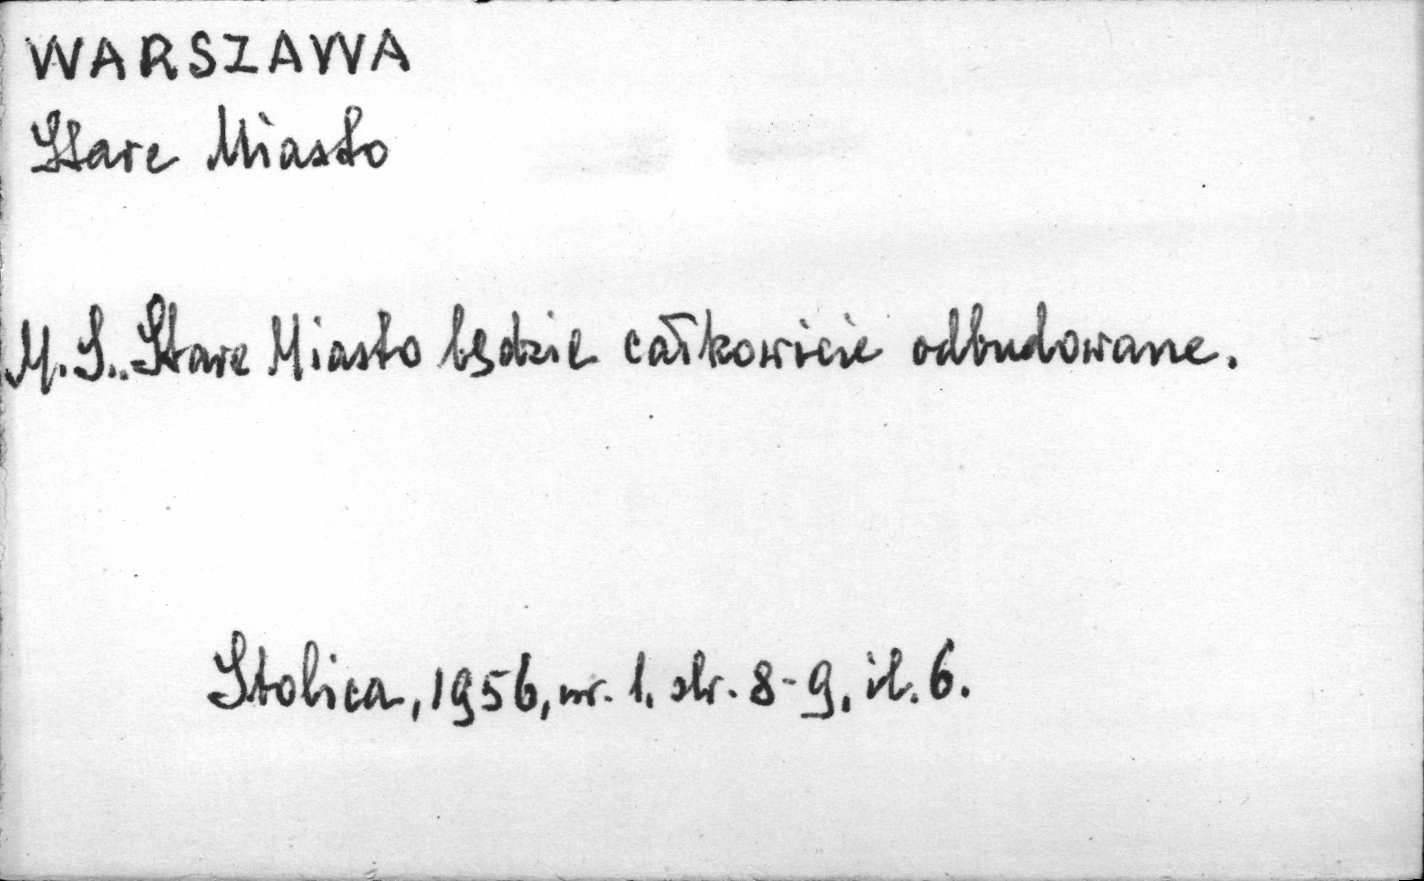 WARSZAWA
Stare Miasto
M. S.. Stare Miasto będzie całkowicie odbudowane.
Stolica, 1956, nr. 1, str. 8-9, il. 6.